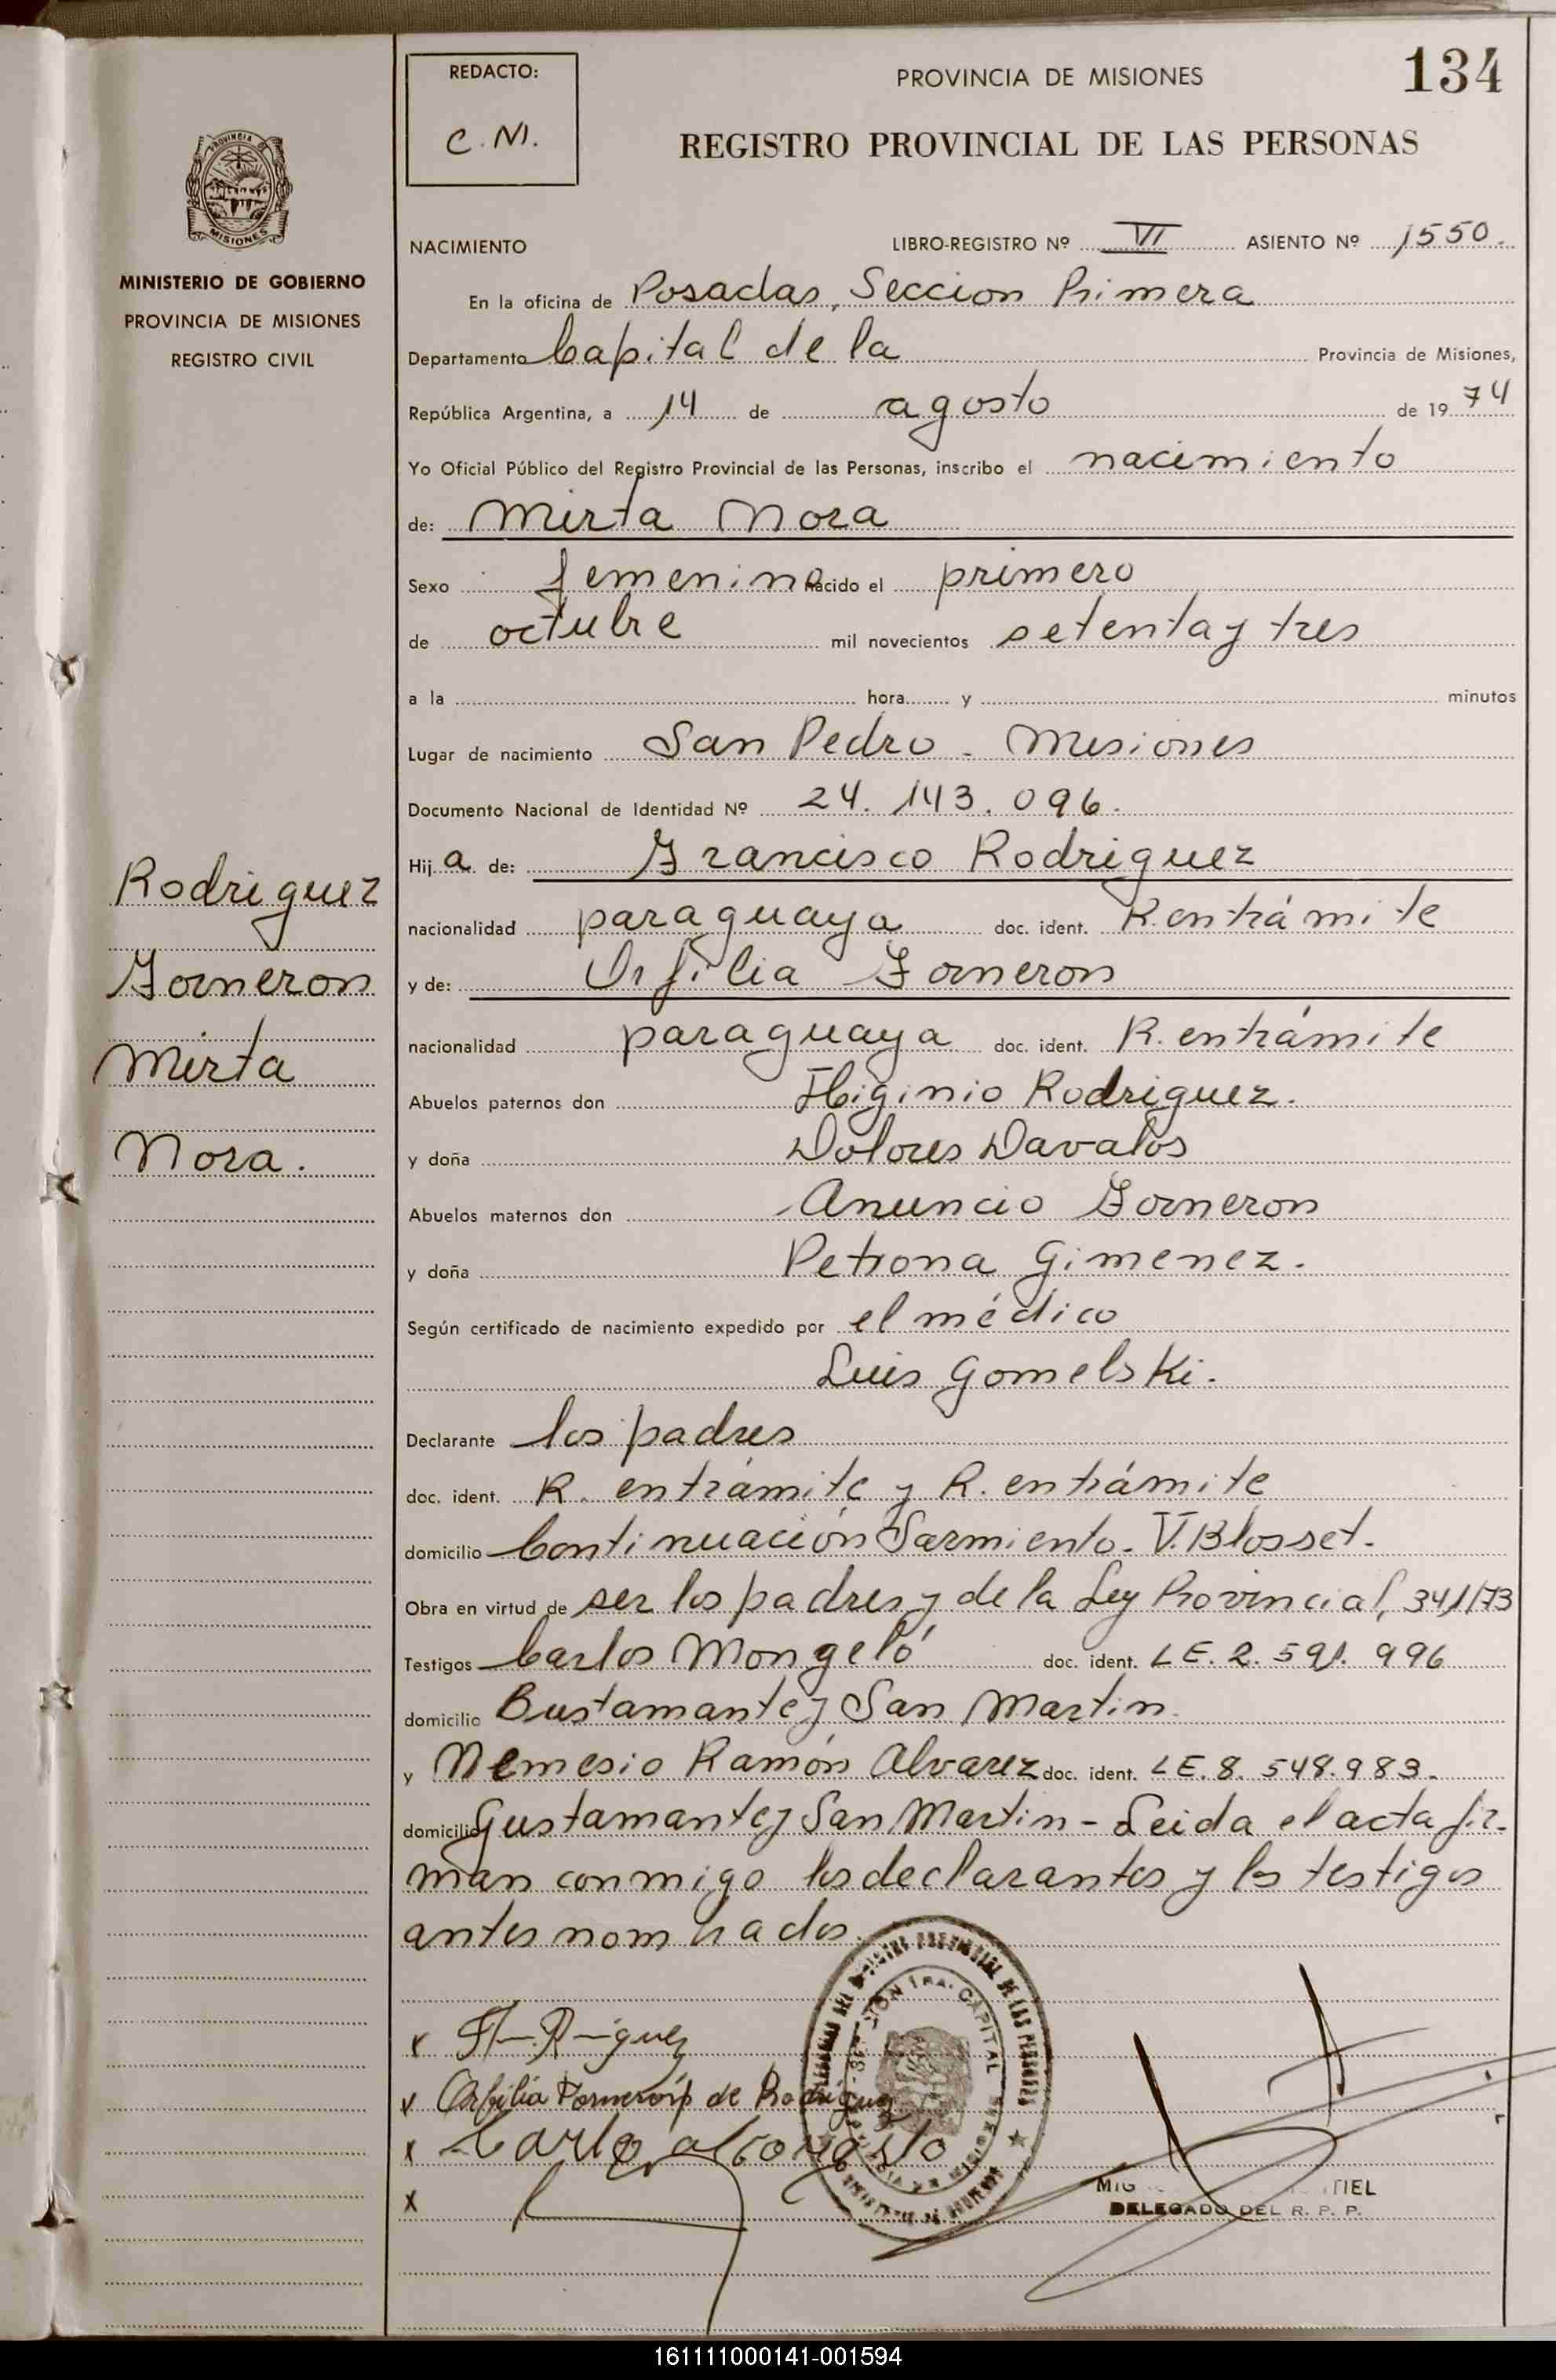 REDACTO:
C. M.
PROVINCIA DE MISIONES
134
REGISTRO PROVINCIAL DE LAS PERSONAS
MISIONES
MINISTERIO DE GOBIERNO
PROVINCIA DE MISIONES
REGISTRO CIVIL
NACIMIENTO LIBRO-REGISTRO Nº VI ASIENTO Nº 1550.
En la oficina de Posadas, Seccion Primera
Departamento Capital de la Provincia de Misiones,
República Argentina, a 14 de agosto de 19 74
Yo Oficial Público del Registro Provincial de las Personas, inscribo el nacimiento
de: Mirta Nora
Sexo femenino nacido el primero
de octubre mil novecientos setenta y tres
a la hora y minutos
Lugar de nacimiento San Pedro - Misiones
Documento Nacional de Identidad Nº 24.143.096.
Hij a de: Francisco Rodriguez
nacionalidad paraguaya doc. ident. R. en trámite
y de: Orfilia Forneron
nacionalidad paraguaya doc. ident. R. en trámite
Abuelos paternos don Higinio Rodriguez.
y doña Dolores Davalos
Abuelos maternos don Anuncio Forneron
y doña Petrona Gimenez.
Según certificado de nacimiento expedido por el médico
Luis Gomelski.
Declarante los padres
doc. ident. R. en trámite y R. en trámite
domicilio Continuación Sarmiento - V. Blosset.
Obra en virtud de ser los padres y de la Ley Provincial, 341/73
Testigos Carlos Mongeló doc. ident. LE. 2.591.996
domicilio Bustamante y San Martin.
y Nemesio Ramón Alvarez doc. ident. LE. 8.548.983.
domicilio Gustamante y San Martin - Leida el acta fir-
man conmigo los declarantes y los testigos
antes nombrados.
Rodriguez
Forneron
Mirta
Nora.
x
x Orfilia Forneron de Rodriguez
x Carlo
x
CAPITAL
MIG TIEL
DELEGADO DEL R. P. P.
161111000141-001594